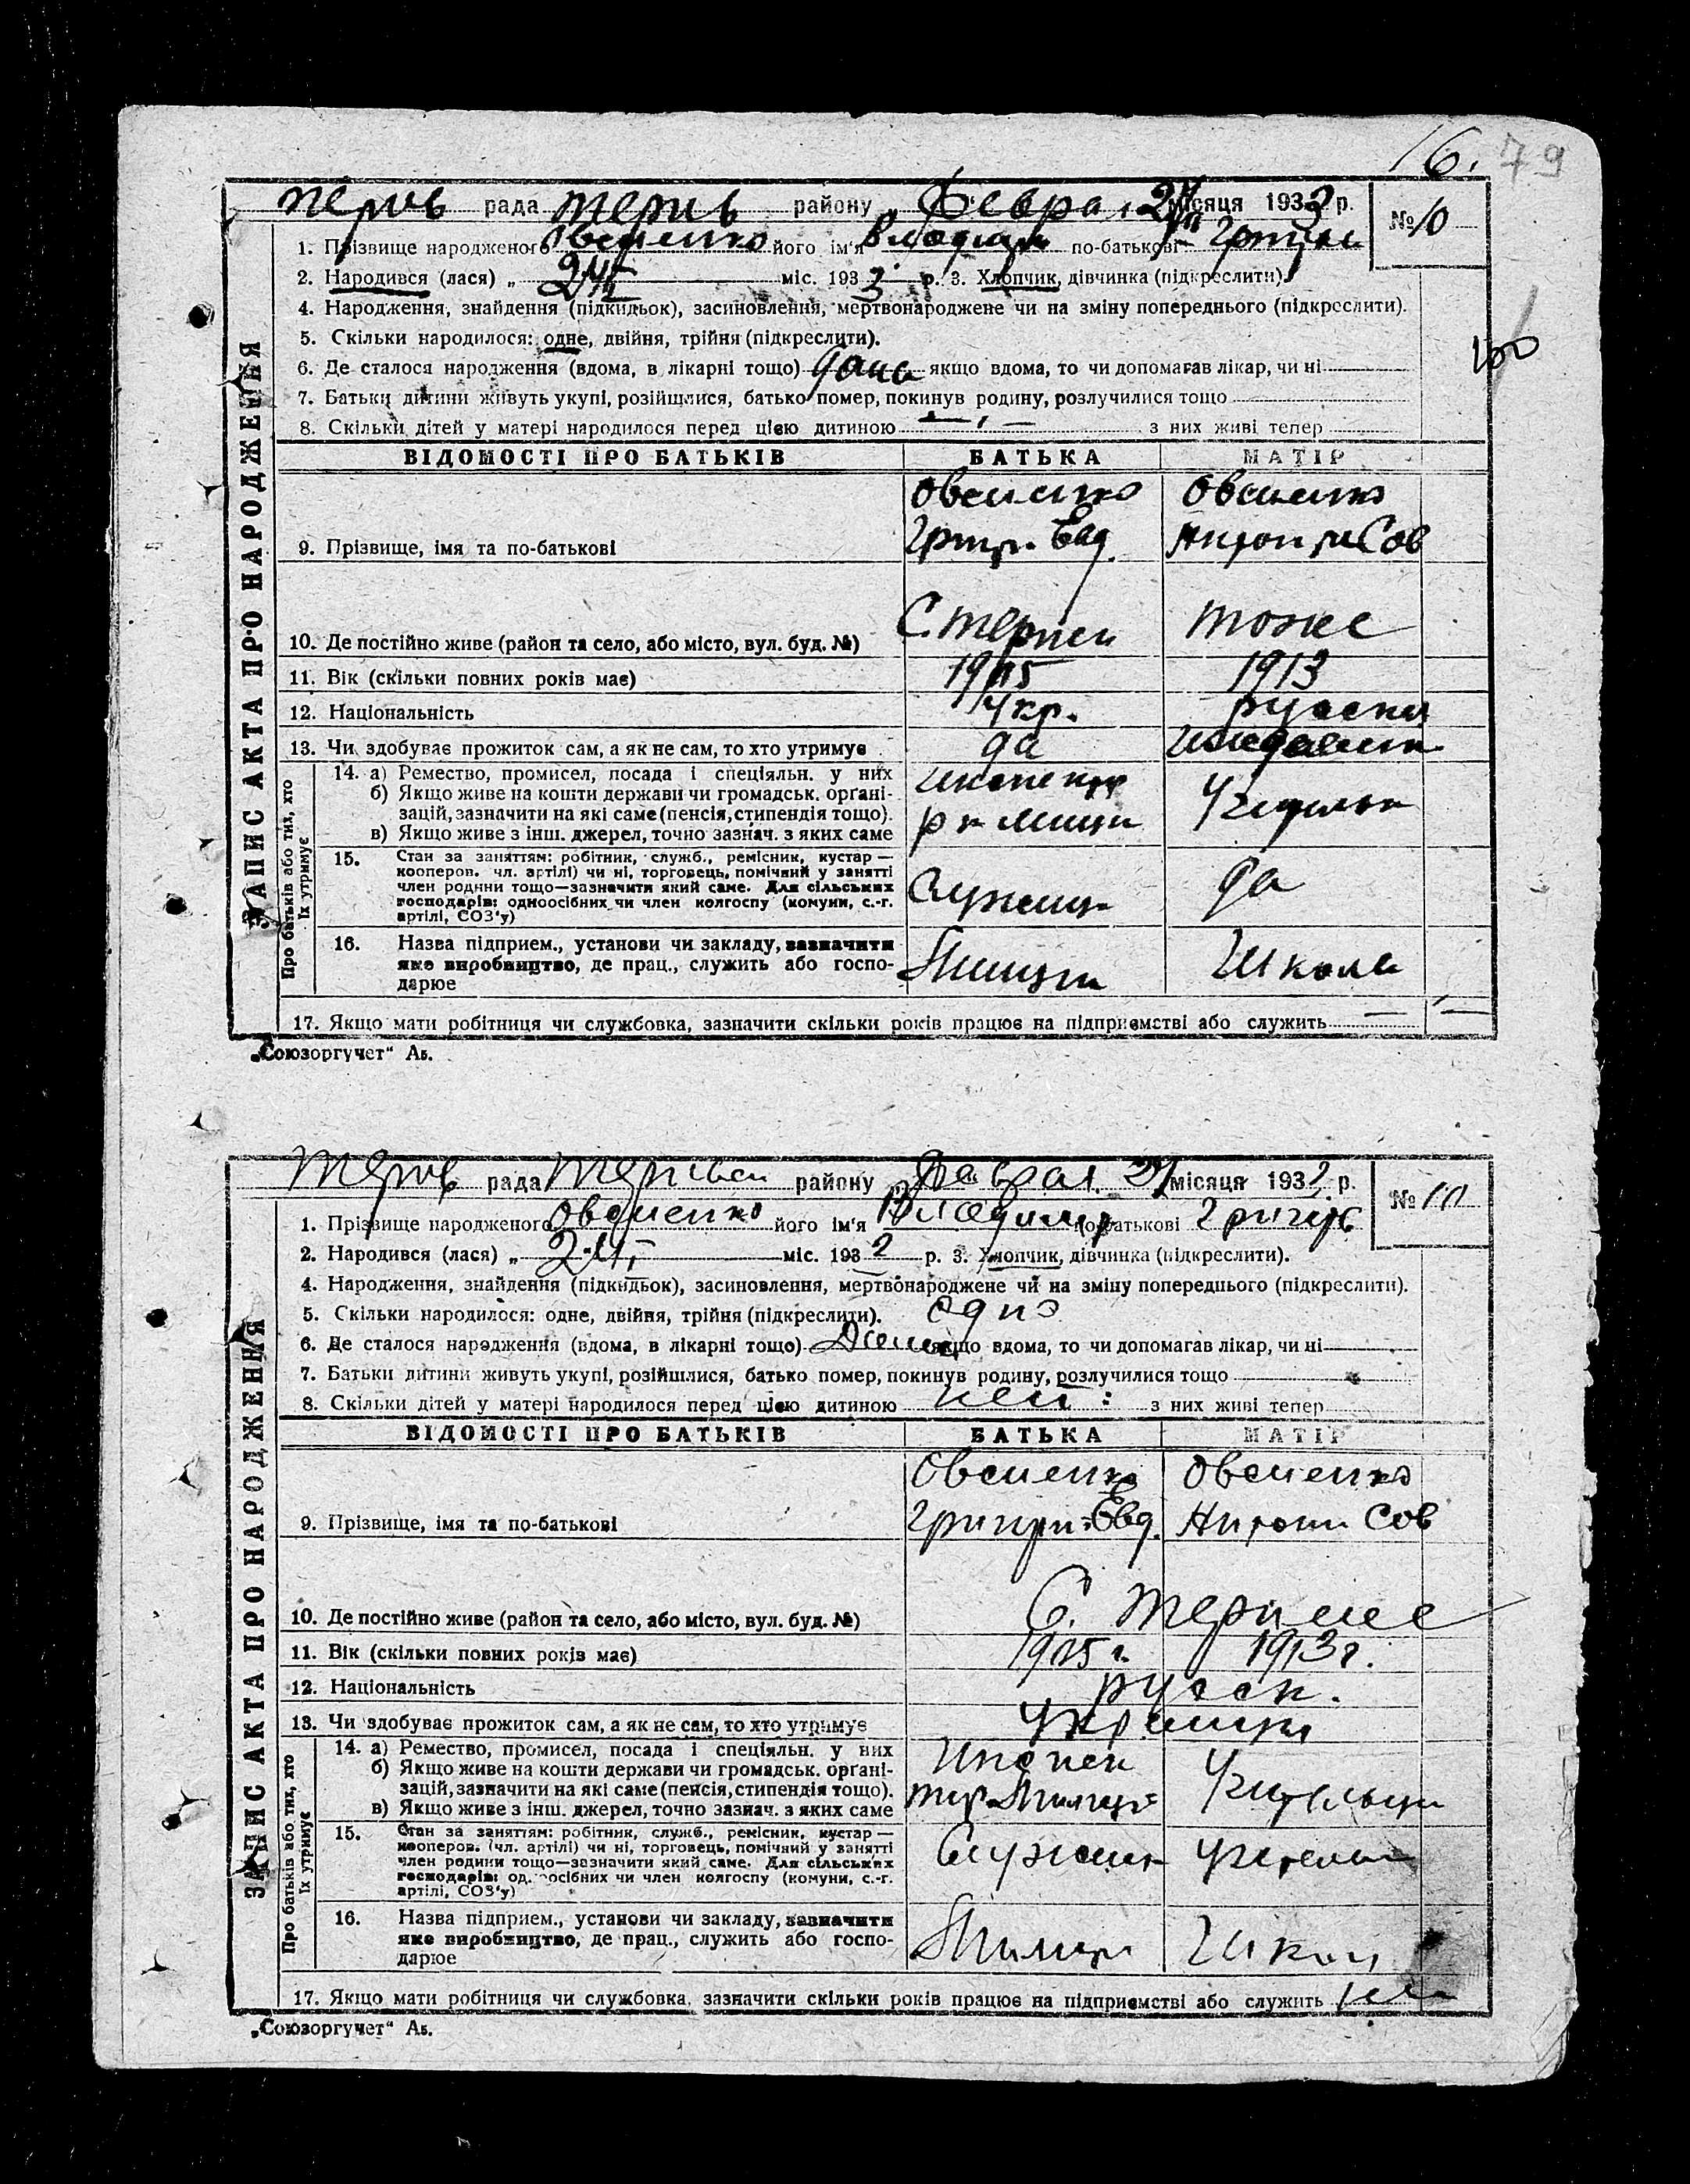 16. 79
рада району Феврал 24 місяця 193 р. № 10
1. Прізвище народженого його ім'я Владимир по-батькові
2. Народився (лася) „ 24/II міс. 1933 р. 3. Хлопчик, дівчинка (підкреслити).
4. Народження, знайдення (підкидьок), засиновлення, мертвонароджене чи на зміну попереднього (підкреслити).
5. Скільки народилося: одне, двійня, трійня (підкреслити).
6. Де сталося народження (вдома, в лікарні тощо) дома якщо вдома, то чи допомагав лікар, чи ні
7. Батьки дитини живуть укупі, розійшлися, батько помер, покинув родину, розлучилися тощо
8. Скільки дітей у матері народилося перед цією дитиною — з них живі тепер
ЗАПИС АКТА ПРО НАРОДЖЕННЯ
ВІДОМОСТІ ПРО БАТЬКІВ БАТЬКА МАТІР
Овсиенко Овсиенко
9. Прізвище, імя та по-батькові Григри. Евд. Сов
10. Де постійно живе (район та село, або місто, вул. буд. №) С. Терни тоже
11. Вік (скільки повних років має) 1915 1913
12. Національність Укр. русская
13. Чи здобуває прожиток сам, а як не сам, то хто утримує да
Про батьків або тих, хто їх утримує
14. а) Ремество, промисел, посада і спеціяльн. у них
б) Якщо живе на кошти держави чи громадськ. органі-
зацій, зазначити на які саме (пенсія, стипендія тощо).
в) Якщо живе з інш. джерел, точно зазнач. з яких саме
15. Стан за заняттям: робітник, служб., ремісник, кустар —
кооперов. чл. артілі) чи ні, торговець, помічний у занятті
член родини тощо—зазначити який саме. Для сільських
господарів: одноосібних чи член колгоспу (комуни, с.-г.
артілі, СОЗ'у) да
16. Назва підприєм., установи чи закладу, зазначити
яке виробництво, де прац., служить або госпо-
дарює Школа
17. Якщо мати робітниця чи службовка, зазначити скільки років працює на підприємстві або служить —
„Союзоргучет“ Ав.
рада району Феврал. 24 місяця 1932 р. № 10
1. Прізвище народженого Овсиенко його ім'я Владимир по-батькові Григор
2. Народився (лася) „ 24/II міс. 1932 р. 3. Хлопчик, дівчинка (підкреслити).
4. Народження, знайдення (підкидьок), засиновлення, мертвонароджене чи на зміну попереднього (підкреслити).
5. Скільки народилося: одне, двійня, трійня (підкреслити). одно
6. Де сталося народження (вдома, в лікарні тощо) Дома якщо вдома, то чи допомагав лікар, чи ні
7. Батьки дитини живуть укупі, розійшлися, батько помер, покинув родину, розлучилися тощо
8. Скільки дітей у матері народилося перед цією дитиною нет з них живі тепер
ЗАПИС АКТА ПРО НАРОДЖЕННЯ
ВІДОМОСТІ ПРО БАТЬКІВ БАТЬКА МАТІР
Овсиенко Овсиенко
9. Прізвище, імя та по-батькові Григри. Евд. Сов
10. Де постійно живе (район та село, або місто, вул. буд. №) С.
11. Вік (скільки повних років має) 1915 г. 1913 г.
12. Національність русск.
13. Чи здобуває прожиток сам, а як не сам, то хто утримує
Про батьків або тих, хто їх утримує
14. а) Ремество, промисел, посада і спеціяльн. у них Инспек
б) Якщо живе на кошти держави чи громадськ. органі-
зацій, зазначити на які саме (пенсія, стипендія тощо).
в) Якщо живе з інш. джерел, точно зазнач. з яких саме
15. Стан за заняттям: робітник, служб., ремісник, кустар —
кооперов. (чл. артілі) чи ні, торговець, помічний у занятті
член родини тощо—зазначити який саме. Для сільських
господарів: одноосібних чи член колгоспу (комуни, с.-г.
артілі, СОЗ'у)
16. Назва підприєм., установи чи закладу, зазначити
яке виробництво, де прац., служить або госпо-
дарює
17. Якщо мати робітниця чи службовка, зазначити скільки років працює на підприємстві або служить
„Союзоргучет“ Ав.